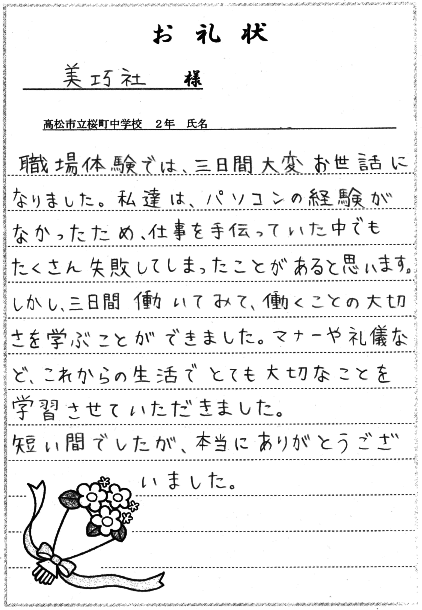 お礼状
美巧社 様
高松市立桜町中学校 2年 氏名
職場体験では、三日間大変お世話に
なりました。私達は、パソコンの経験が
なかったため、仕事を手伝っていた中でも
たくさん失敗してしまったことがあると思います。
しかし、三日間働いてみて、働くことの大切
さを学ぶことができました。マナーや礼儀な
ど、これからの生活でとても大切なことを
学習させていただきました。
短い間でしたが、本当にありがとうござ
いました。